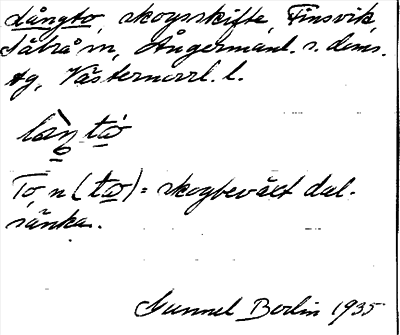 Långto, skogsskifte, Finsvik,
Säbrå sn, Ångermanl. s. doms.
hg, Västernorrl. l.
làŋ to
To, n (to) = skogbeväxt dal-
sänka.
Gunnel Bodin 1935